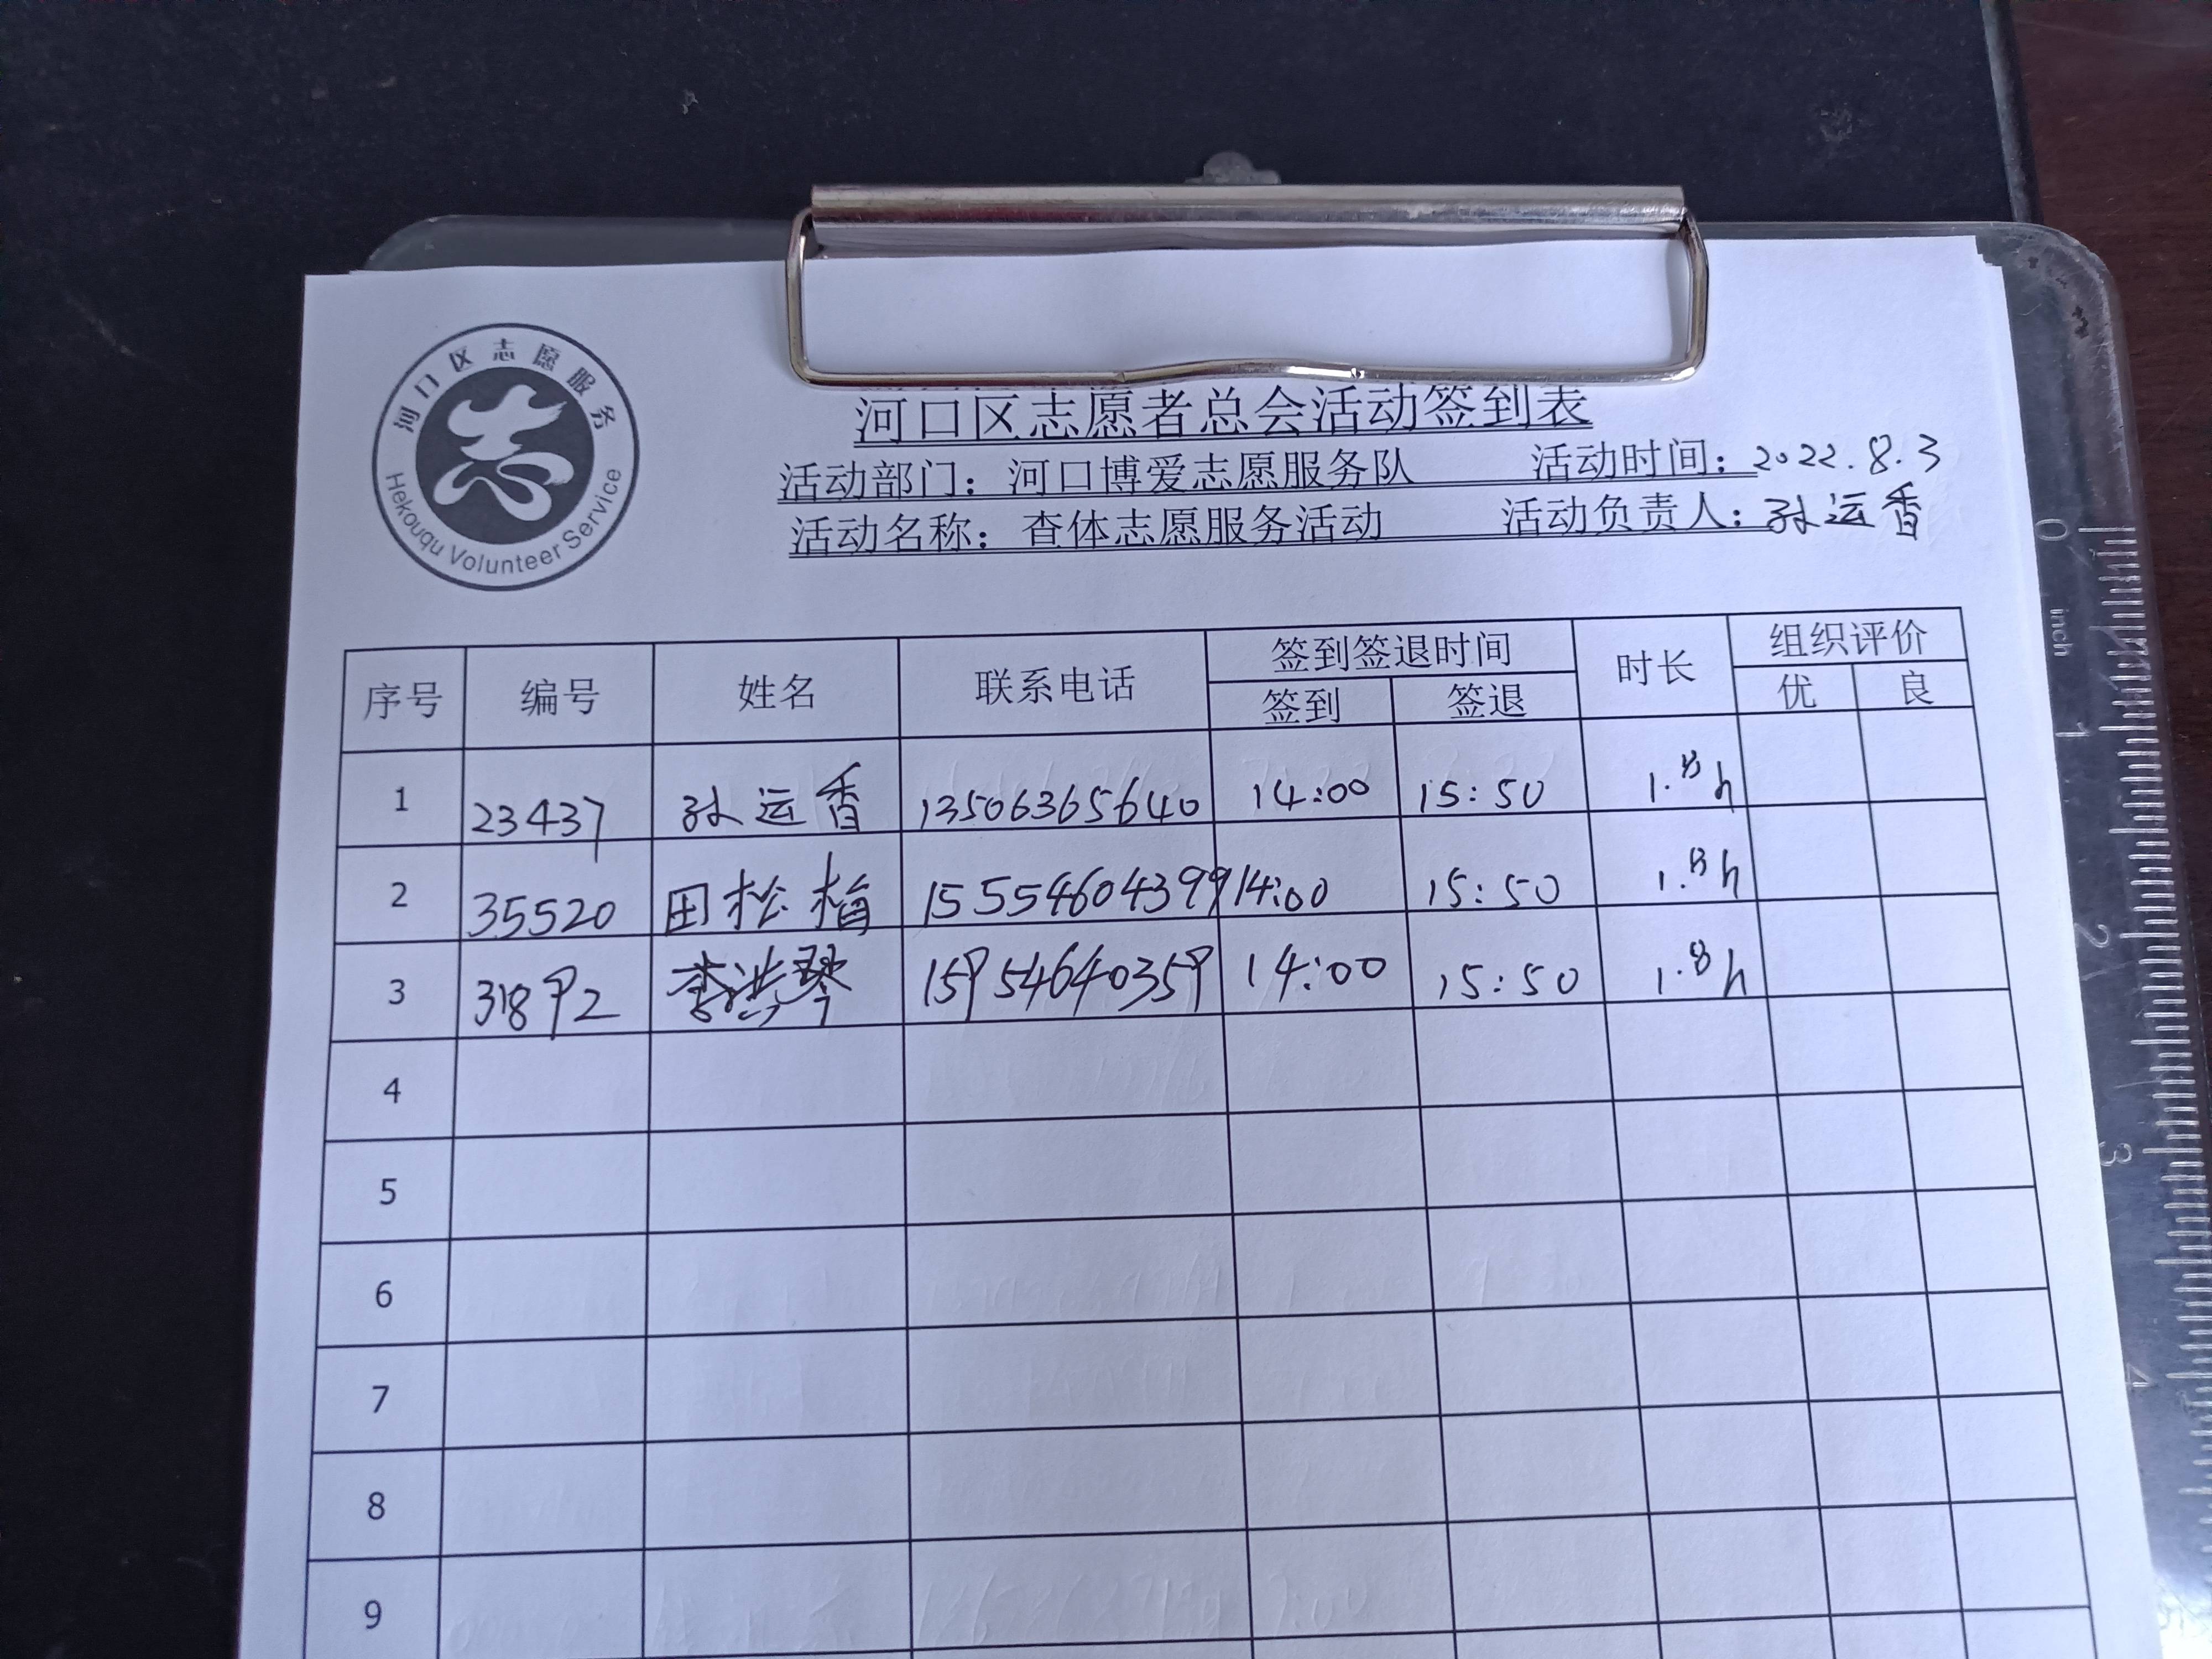 河口区志愿服务
Hekouqu Volunteer Service
河口区志愿者总会活动签到表
活动部门：河口博爱志愿服务队 活动时间：2022.8.3
活动名称：查体志愿服务活动 活动负责人：孙运香
序号 编号 姓名 联系电话 签到签退时间 时长 组织评价
签到 签退 优 良
1 23437 孙运香 13506365640 14:00 15:50 1.8h
2 35520 田松梅 15554604399 14:00 15:50 1.8h
3 31892 李洪琴 15954640359 14:00 15:50 1.8h
4
5
6
7
8
9
0 inch 1 2 3 4